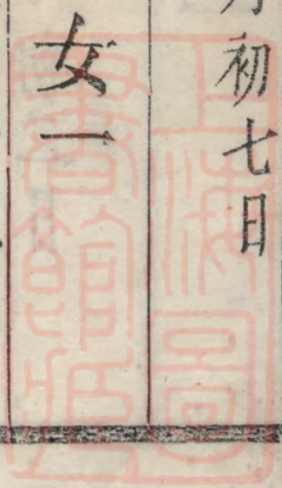 月初七日
女一
上海圖
書館藏